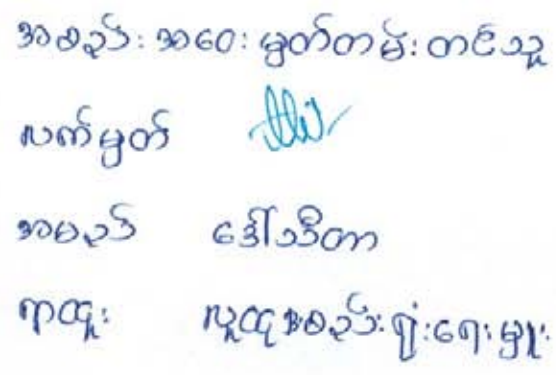 အစည်းအဝေးမှတ်တမ်းတင်သူ
လက်မှတ်
အမည် ဒေါ်သီတာ
ရာထူး လူထုအစည်းရုံးရေးမှူး